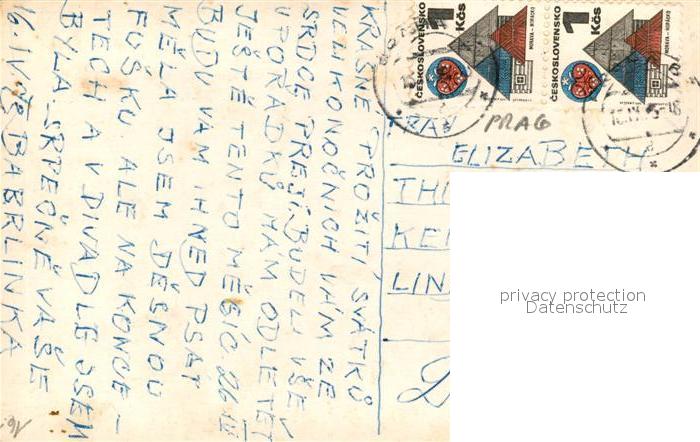 KRÁSNÉ PROŽITÍ SVÁTKŮ
VELKONOČNÍCH VÁM ZE
SRDCE PŘEJI. BUDELI VŠE
V POŘÁDKU MÁM ODLETĚT
JEŠTĚ TENTO MĚSÍC 26.IV
BUDU VÁM IHNED PSÁT
MĚLA JSEM DĚSNOU
FUŠKU. ALE NA KONCE-
TECH A V DIVADLE JSEM
BYLA. SRDEČNĚ VAŠE
16. IV. BABRLINKA
ČESKOSLOVENSKO
1 Kčs
MORAVA - HORÁCKO
ČESKOSLOVENSKO
1 Kčs
MORAVA - HORÁCKO
PRAG
ELIZABETH
LIN
privacy protection
Datenschutz